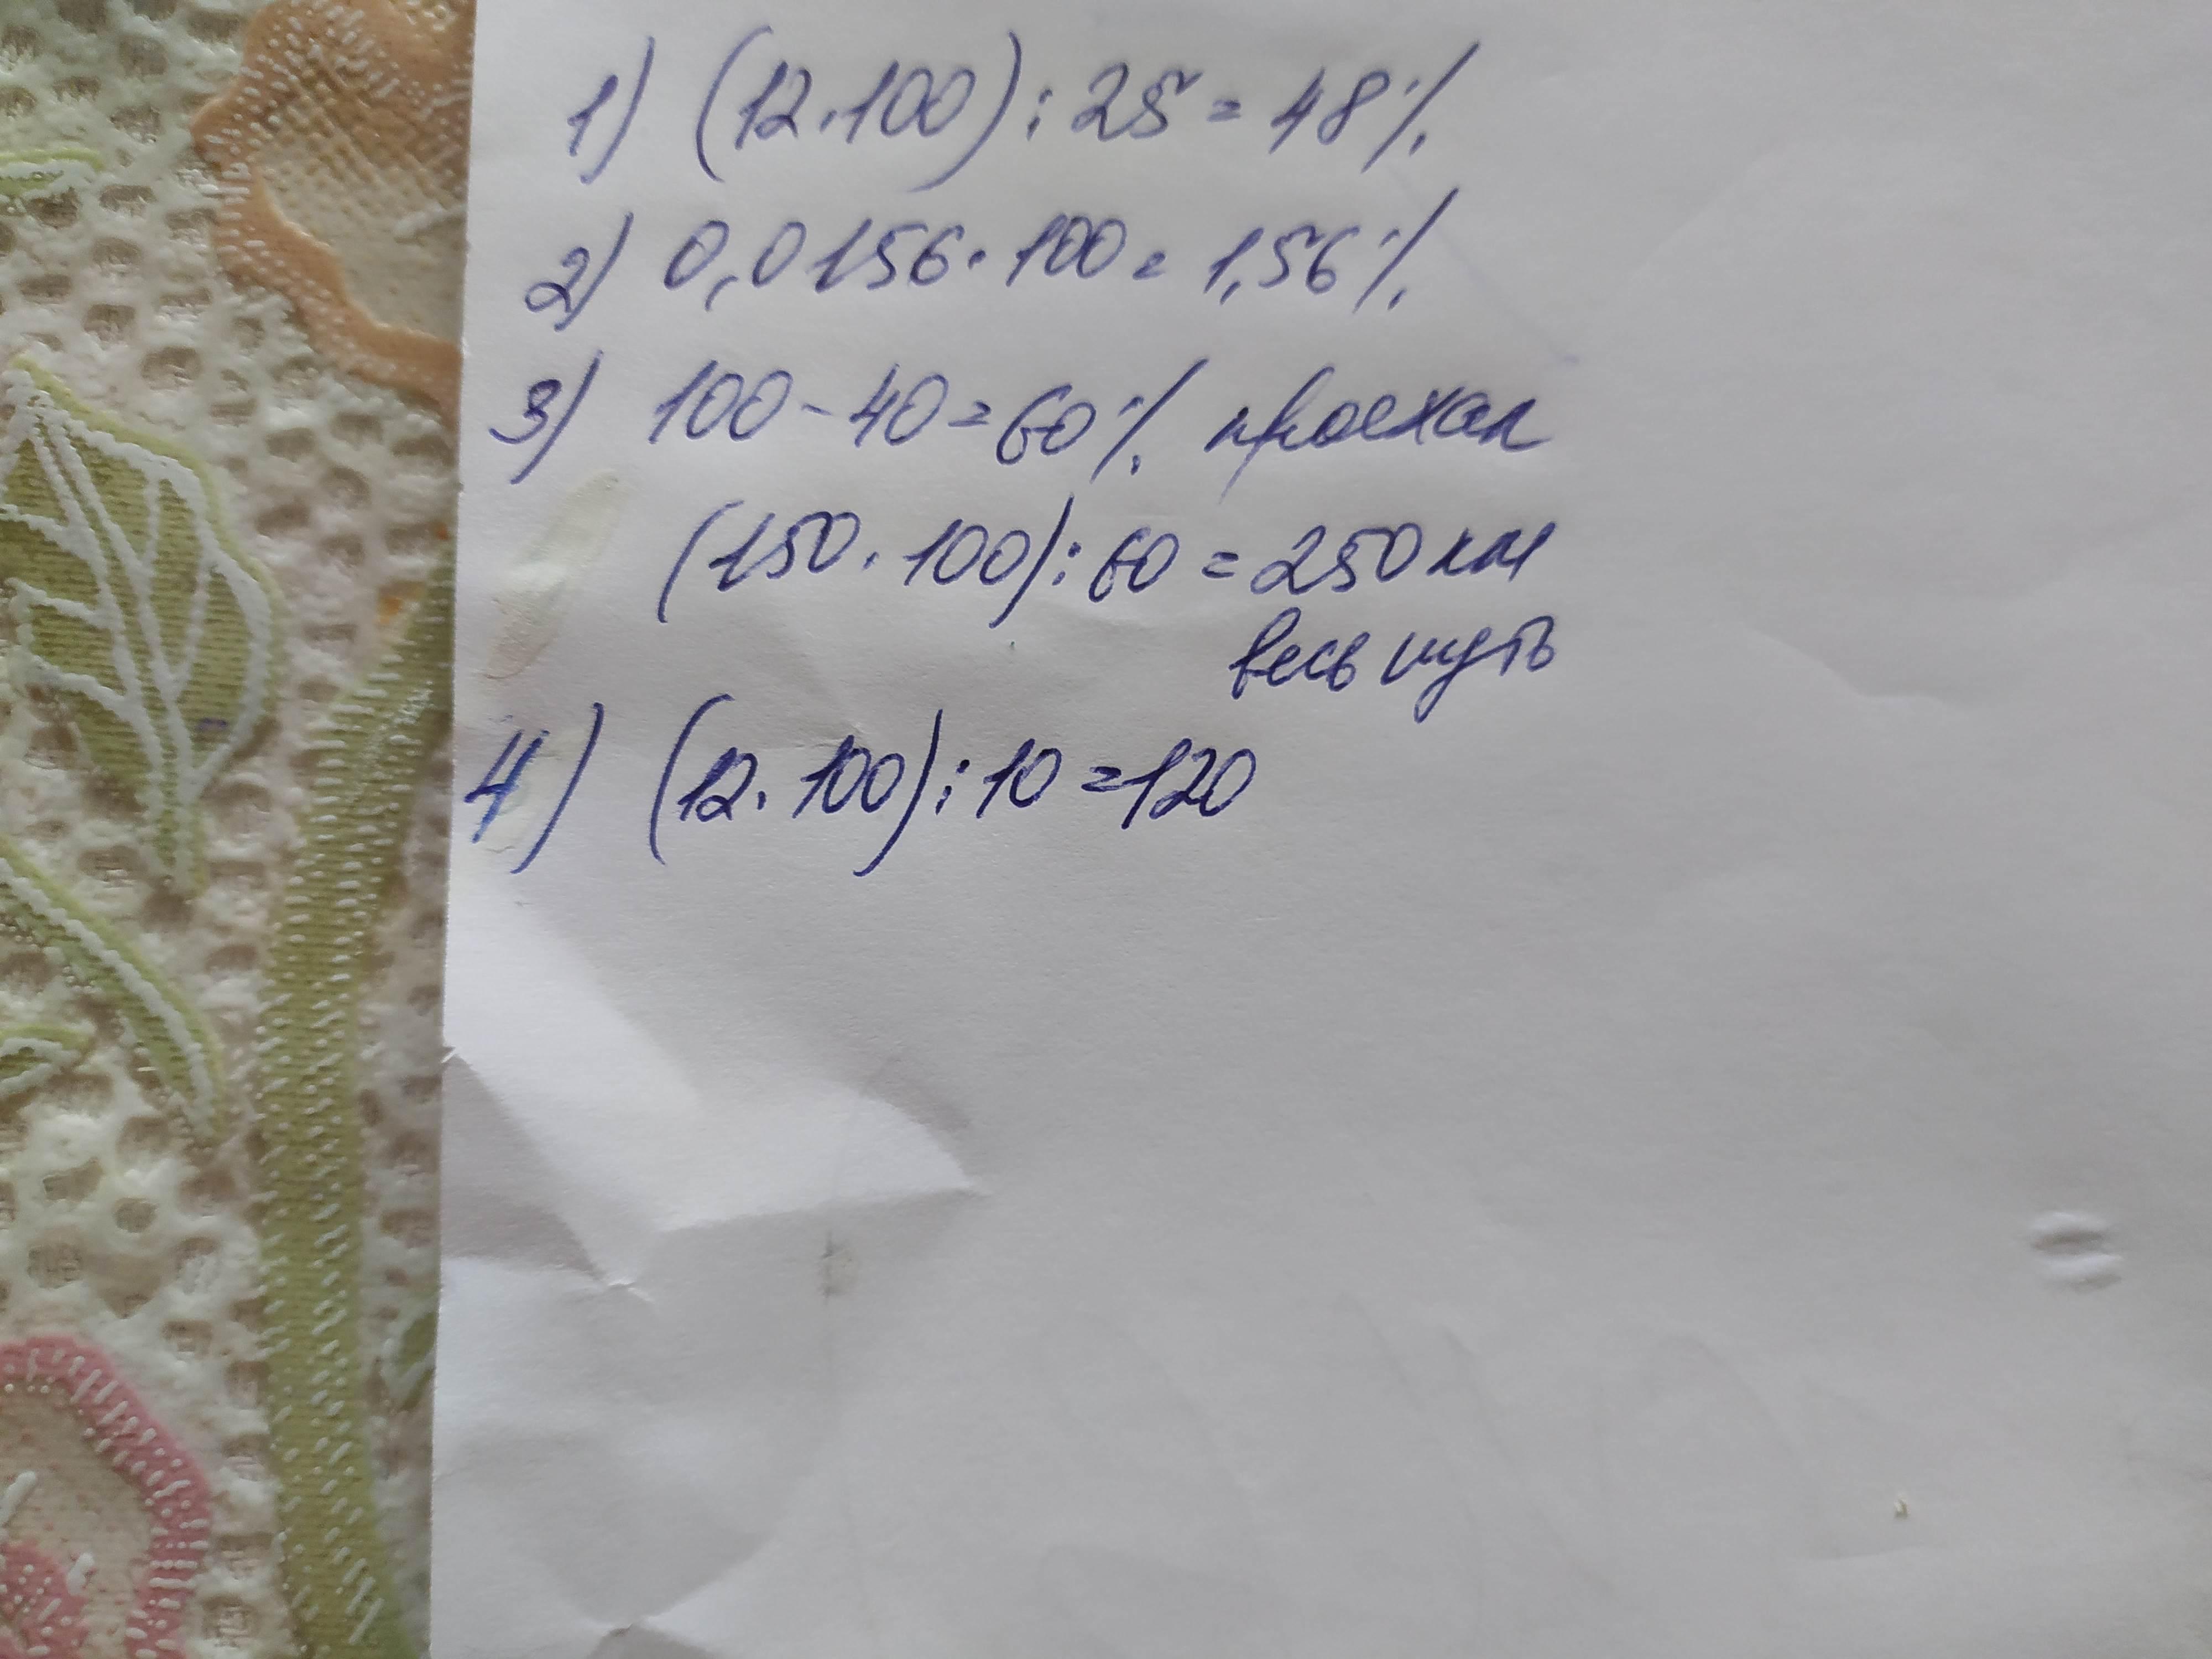 1) (12·100):25=48%
2) 0,0156·100=1,56%
3) 100-40=60% проехал
(150·100):60=250км
весь путь
4) (12·100):10=120